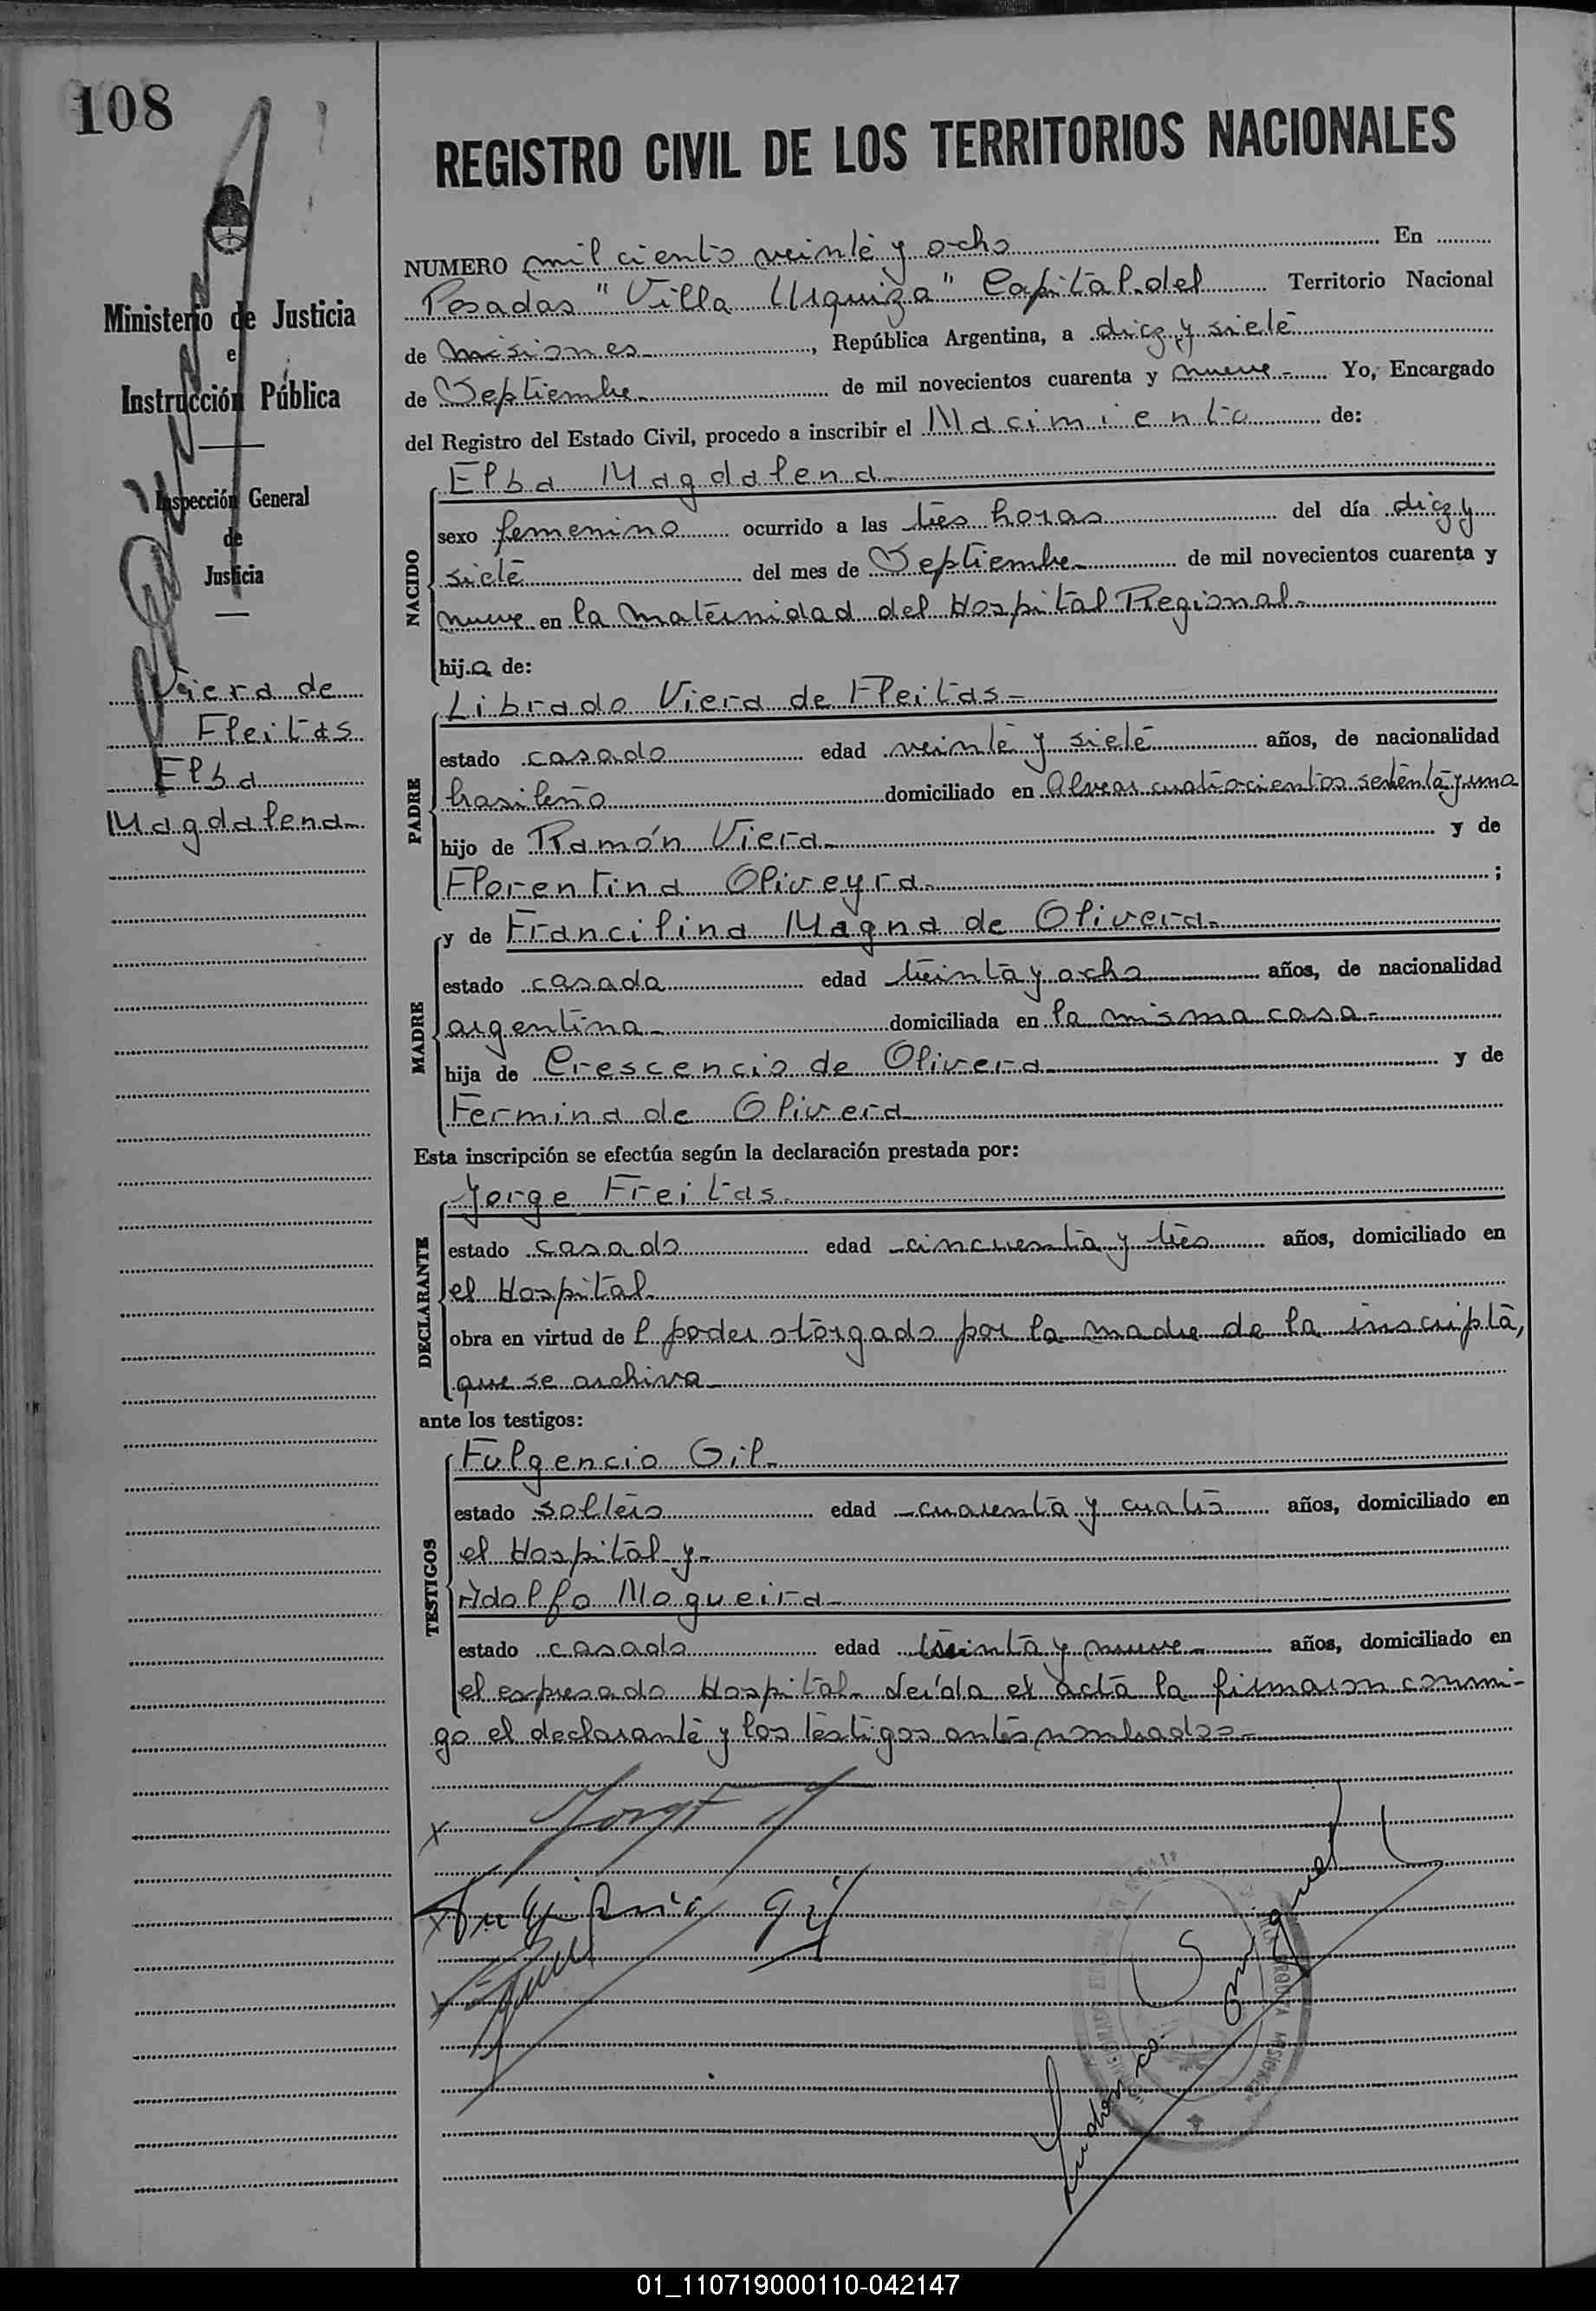 108
REGISTRO CIVIL DE LOS TERRITORIOS NACIONALES
Ministerio de Justicia
e
Instrucción Pública
Inspección General
de
Justicia
Viera de
Fleitas
Elba
Magdalena
NUMERO mil ciento veinte y ocho En
Posadas "Villa Urquiza" Capital del Territorio Nacional
de Misiones, República Argentina, a diez y siete
de Septiembre de mil novecientos cuarenta y nueve Yo, Encargado
del Registro del Estado Civil, procedo a inscribir el Nacimiento de:
NACIDO
Elba Magdalena
sexo femenino ocurrido a las tres horas del día diez y
siete del mes de Septiembre de mil novecientos cuarenta y
nueve en la maternidad del Hospital Regional
hija de:
PADRE
Librado Viera de Fleitas
estado casado edad veinte y siete años, de nacionalidad
brasileño domiciliado en Alvear cuatrocientos setenta y uno
hijo de Ramón Viera y de
Florentina Oliveyra ;
MADRE
y de Francilina Magna de Olivera
estado casada edad treinta y ocho años, de nacionalidad
argentina domiciliada en la misma casa
hija de Crescencio de Olivera y de
Fermina de Olivera
Esta inscripción se efectúa según la declaración prestada por:
DECLARANTE
Jorge Freitas
estado casado edad cincuenta y tres años, domiciliado en
el Hospital
obra en virtud del poder otorgado por la madre de la inscripta,
que se archiva
ante los testigos:
TESTIGOS
Fulgencio Gil
estado soltero edad cuarenta y cuatro años, domiciliado en
el Hospital y
Adolfo Nogueira
estado casado edad treinta y nueve años, domiciliado en
el expresado Hospital. Leída el acta la firmaron conmi-
go el declarante y los testigos antes nombrados
x Jorge
x Gil
x
01_110719000110-042147